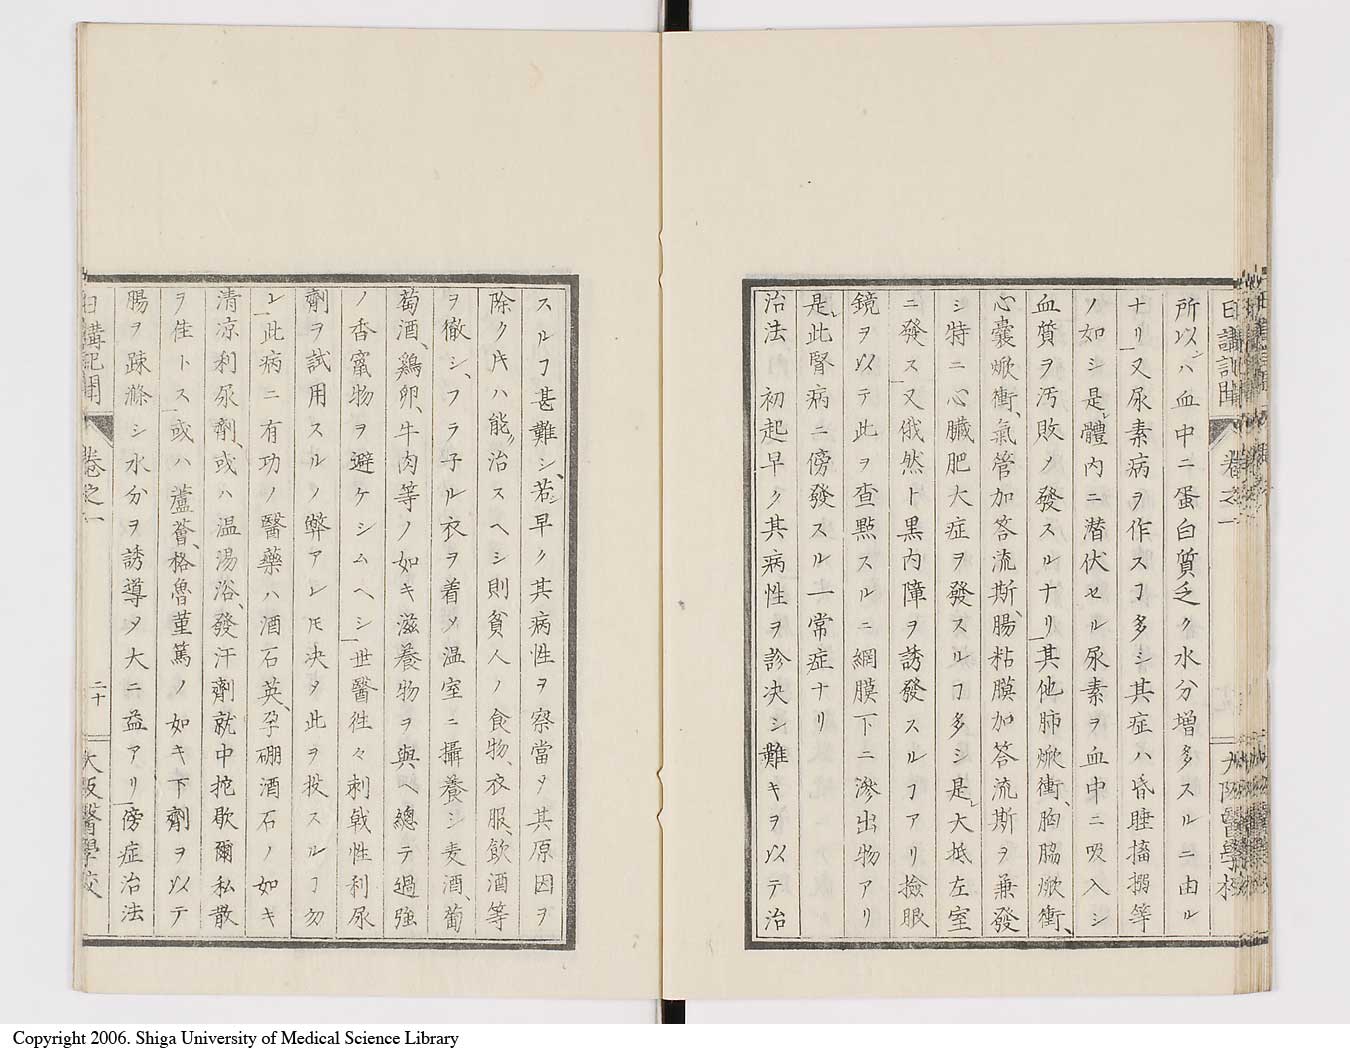 日講記聞 卷之一 大阪醫學校
所以ハ血中ニ蛋白質乏ク水分增多スルニ由ル
ナリ又尿素病ヲ作スヿ多シ其症ハ昏睡搐搦等
ノ如シ是レ體內ニ潛伏セル尿素ヲ血中ニ吸入シ
血質ヲ汚敗メ發スルナリ其他肺焮衝、胸脇焮衝、
心囊焮衝、氣管加答流斯、腸粘膜加答流斯ヲ兼發
シ特ニ心臟肥大症ヲ發スルヿ多シ是レ大抵左室
ニ發ス又俄然ト黒内障ヲ誘發スルヿアリ撿眼
鏡ヲ以テ此ヲ查㸃スルニ網膜下ニ滲出物アリ
是レ此腎病ニ傍發スル一常症ナリ
治法 初起早ク其病性ヲ診決シ難キヲ以テ治
スルヿ甚難シ、若シ早ク其病性ヲ察當メ其原因ヲ
除ク片ハ能ク治スヘシ則貧人ノ食物、衣服、飲酒等
ヲ徹シ、フラ子ル衣ヲ着メ温室ニ攝養シ麦酒、葡
萄酒、鷄卵、牛肉等ノ如キ滋養物ヲ與ヘ總テ過強
ノ香竄物ヲ避ケシムヘシ世醫徃々刺戟性利尿
劑ヲ試用スルノ弊アレ𪜈决メ此ヲ投スルヿ勿
レ此病ニ有功ノ醫藥ハ酒石英、孕硼酒石ノ如キ
清凉利尿劑、或ハ温湯浴、發汗劑就中抡歇爾私散
ヲ佳トス或ハ蘆薈、格魯菫篤ノ如キ下劑ヲ以テ
腸ヲ疎滌シ水分ヲ誘導メ大ニ益アリ傍症治法
日講記聞 卷之一 二十 大阪醫學校
Copyright 2006. Shiga University of Medical Science Library